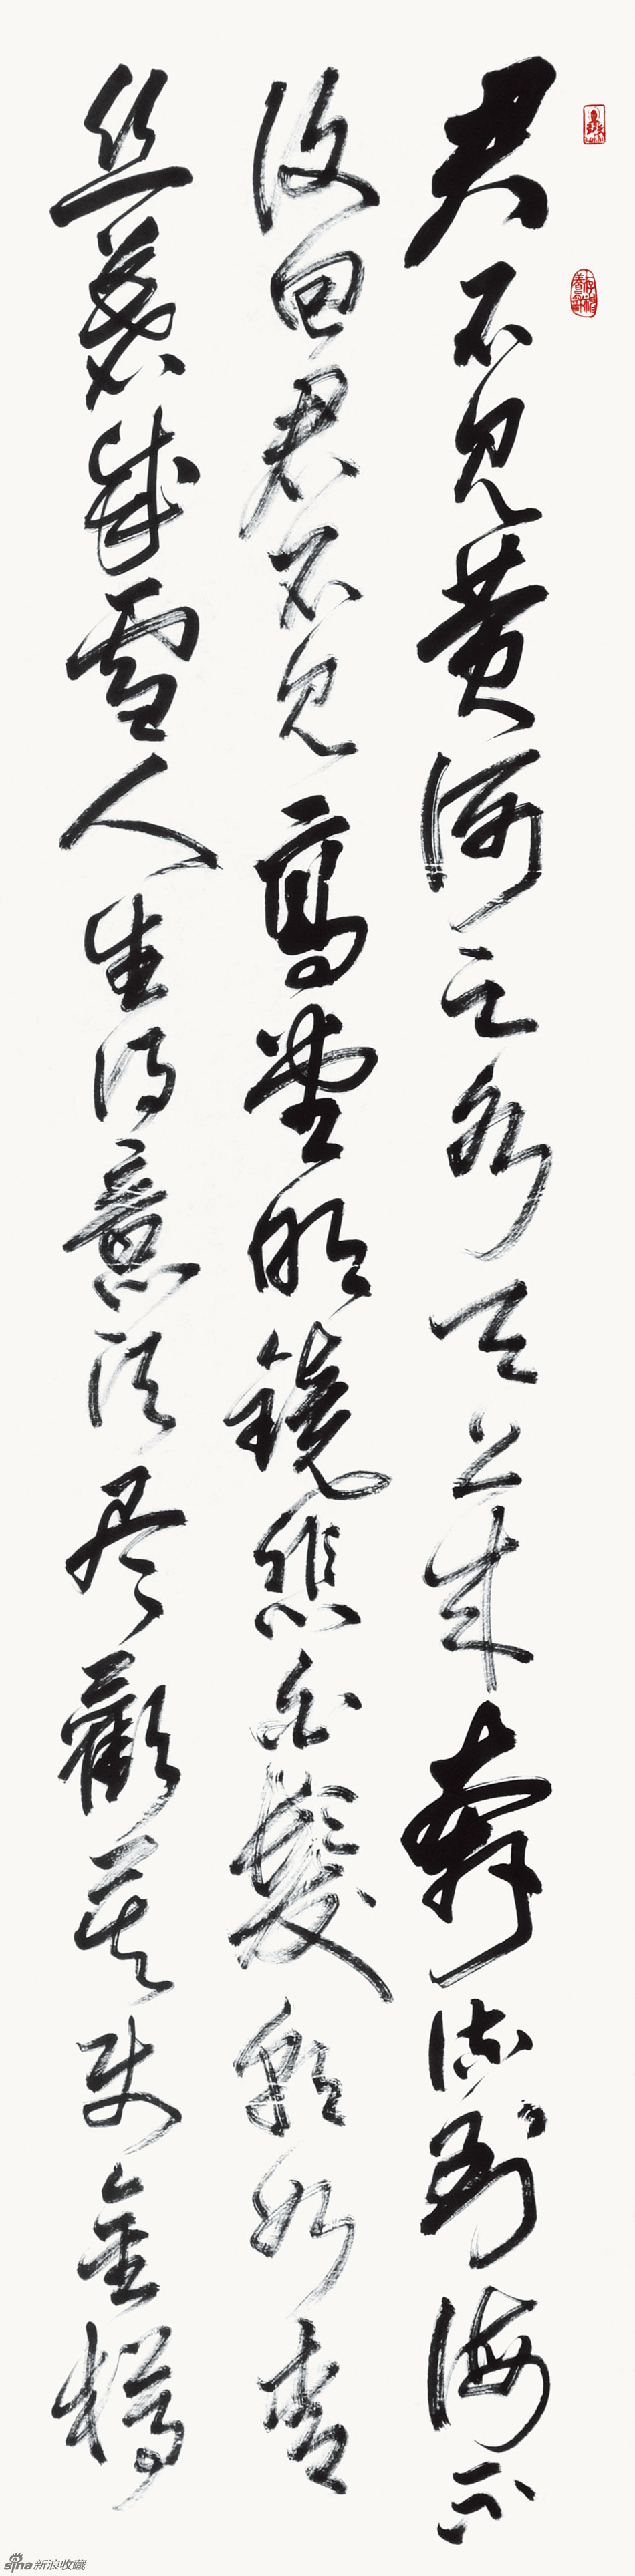 君不见黄河之水天上来奔流到海不
復回君不见高堂明鏡悲白髮朝如青
丝暮成雪人生得意须尽歡莫使金樽
sina新浪收藏